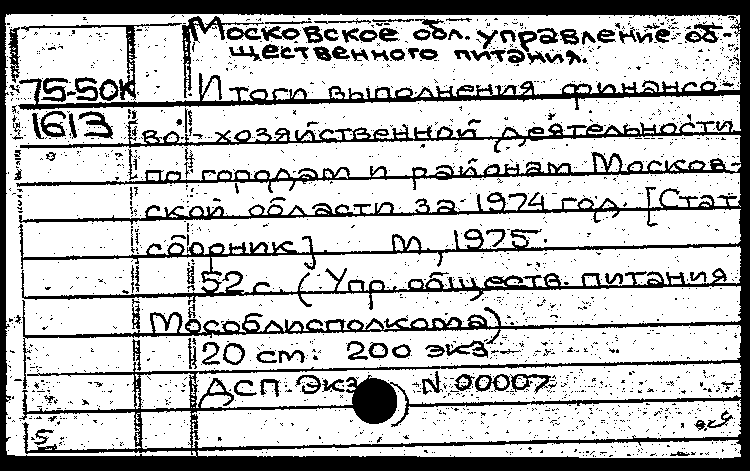 Московское обл. управление об-
щественного питания.
75-50К Итоги выполнения финансо-
1613 во-хозяйственной деятельности
по городам и районам Москов-
ской области за 1974 год. [Стат.
сборник]. М., 1975.
52 с. (Упр. обществ. питания
Мособлисполкома).
20 см. 200 экз.
ДСП. Экз. N 00007